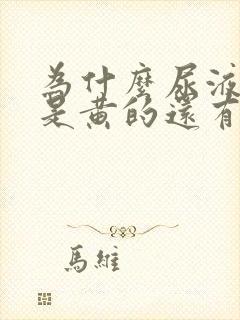 為什麼尿液
是黃的還有
馬維